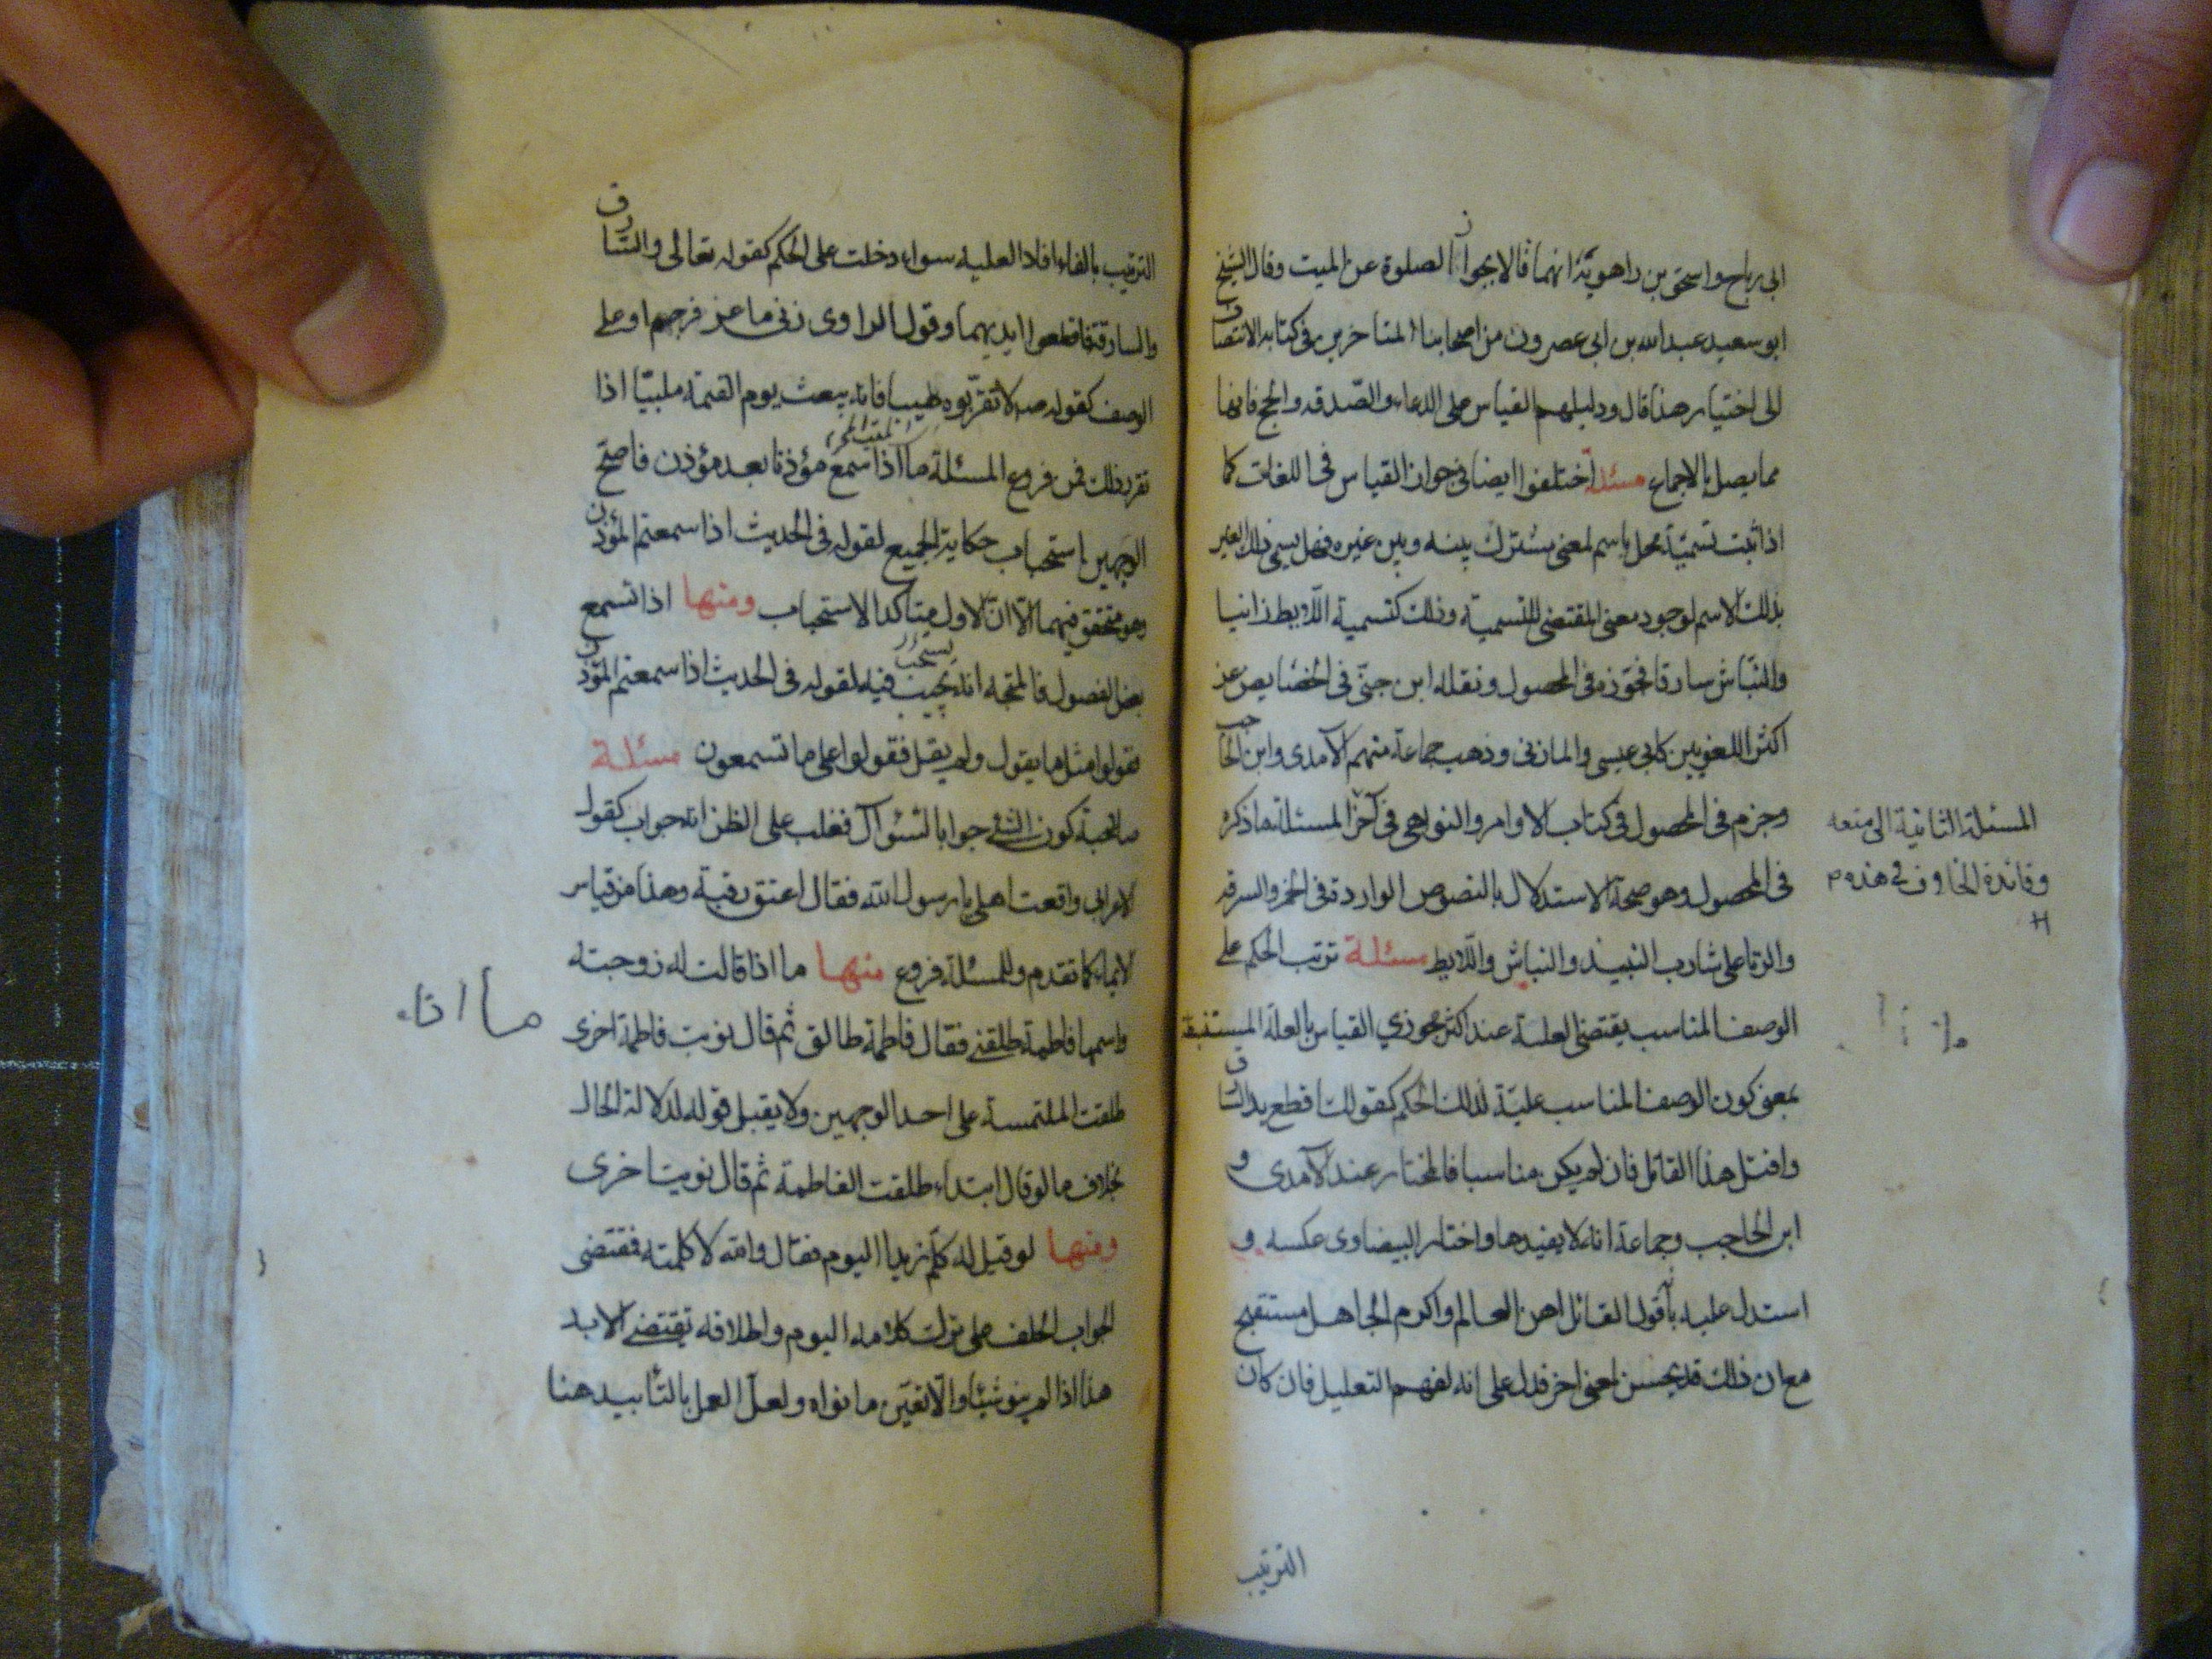 ابى رباح واسحق بن راهويّة انهما قالا بجواز الصلوة عن الميت وقال الشيخ
ابو سعيد عبد الله بن ابى عصرون من اصحابنا المتاخرين فى كتابه الانتصار
الى اختيار هذا قال ودليلهم القياس على الدعاء والصّدقه والحج فانها
مما يصل بالاجماع مسئلة اختلفوا ايضا فى جواز القياس فى اللغات كما
اذا ثبت تسميّة محل باسم لمعنى مشترك بينه وبين غيره فهل يسمى ذلك الغير
بذلك الاسم لوجود معنى المقتضى للتسمية وذلك كتسمية اللّايط زانيا
والنبّاش سارقا فجوّزه فى المحصول ونقله ابن جنىّ فى الخصايص عن
اكثر اللغويين كابى عيسى والمازنى وذهب جماعة منهم الآمدى وابن الحاجب
وجزم فى المحصول فى كتاب الاوامر والنواهى فى آخر المسئلة ما ذكره
المسئلة الثانية الى منعه
وفائدة الخلاف فى هذه
فى المحصول وهو صحة الاستدلال بالنصوص الواردة فى الخمر والسرقه
والزنا على شارب النبيذ والنباش واللّايط مسئلة ترتب الحكم على
الوصف المناسب يقتضى العلية عند اكثر مجوزي القياس بالعلة المستنبطة
بمعنى كون الوصف المناسب عليّة لذلك الحكم كقولك اقطع يد السّارق
واقتل هذا القاتل فان لم يكن مناسبا فالمختار عند الآمدى و
ابن الحاجب وجماعة انه لا يفيدها واختار البيضاوى عكسه و
استدل عليه بأن قول القائل اهن العالم واكرم الجاهل مستقبح
مع ان ذلك قد يحسن لمعنى اخر فدل على انه لفهم التعليل فان كان
الترتيب
الترتيب بالفاء افاد العلية سواء دخلت على الحكم كقوله تعالى والسّارق
والسارقة فاقطعوا ايديهما وقول الراوى زنى ماعز فرجم او على
الوصف كقوله صه لا تقرّبوه طيبا فانه يبعث يوم القيمة ملبيّا اذا
تقرر ذلك فمن فروع المسئلة ما اذا سمع مؤذنا بعد مؤذن فاصحّ
الوجهين استحباب حكاية الجميع لقوله فى الحديث اذا سمعتم المؤذن
وهو متحقق فيهما الّا انّ الاول متاكد الاستحباب ومنها اذا تسمع
بعض الفصول فالمتجه انه يجيب فيه لقوله فى الحديث اذا سمعتم المؤذن
يستحب
فقولوا مثل ما يقول ولم يقل فقولوا على ما تسمعون مسئلة
صالحية كون الشئ جوابا لسّؤال فغلب على الظن انه جواب كقول
الاعرابى واقعت اهلى يا رسول الله فقال اعتق رقبة وهذا من قياس
الايماء كما تقدم وللمسئلة فروع منها ما اذا قالت له زوجته
ما اذا
واسمها فاطمة طلقنى فقال فاطمة طالق ثم قال نويت فاطمة اخرى
طلقت الملتمسة على احد الوجهين ولا يقبل قوله لدلالة الحال
بخلاف ما لو قال ابتداء طلقت الفاطمة ثم قال نويت اخرى
ومنها لو قيل له كلّم زيدا اليوم فقال والله لا كلمته فقتضى
الجواب الحلف على ترك كلامه اليوم واطلاقه يقتضى الابد
هذا اذا لم ينو شيئا والّا تعيّن ما نواه ولعلّ العمل بالتأبيد هنا